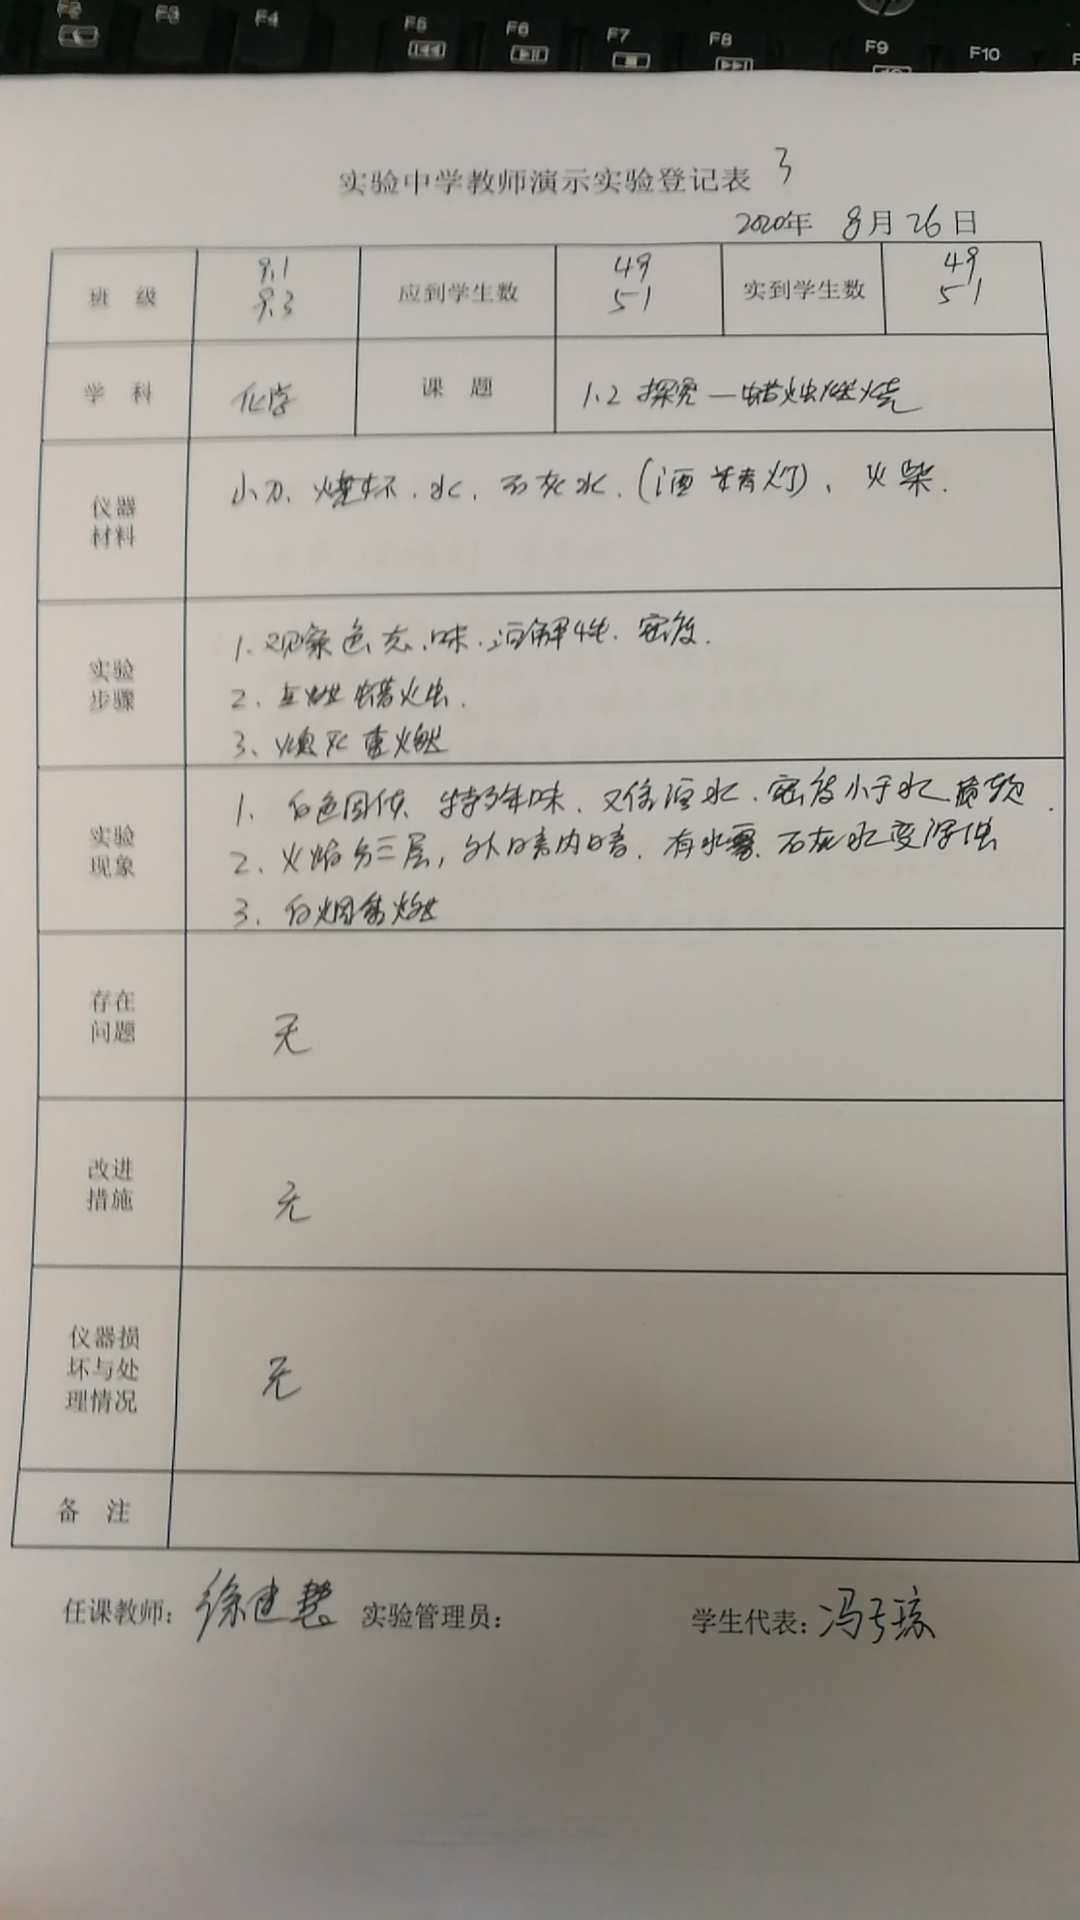 F2
F3
F4
F5
F6
F7
F8
F9
F10
实验中学教师演示实验登记表 3
2020年 8月26日
班 级 9.1 9.3 应到学生数 49 51 实到学生数 49 51
学 科 化学 课 题 1.2 探究—蜡烛燃烧
仪器材料
小刀、烧杯、水、石灰水、(酒精灯)、火柴.
实验步骤
1. 观察色态、味、溶解性、密度.
2. 点燃蜡烛.
3、熄灭重燃
实验现象
1. 白色固体、特殊味、不溶水、密度小于水、质软.
2. 火焰分三层, 外 内暗. 有水雾、石灰水变浑浊
3. 白烟 燃
存在问题
无
改进措施
无
仪器损坏与处理情况
无
备 注
任课教师: 徐建慧 实验管理员: 学生代表: 冯 琼